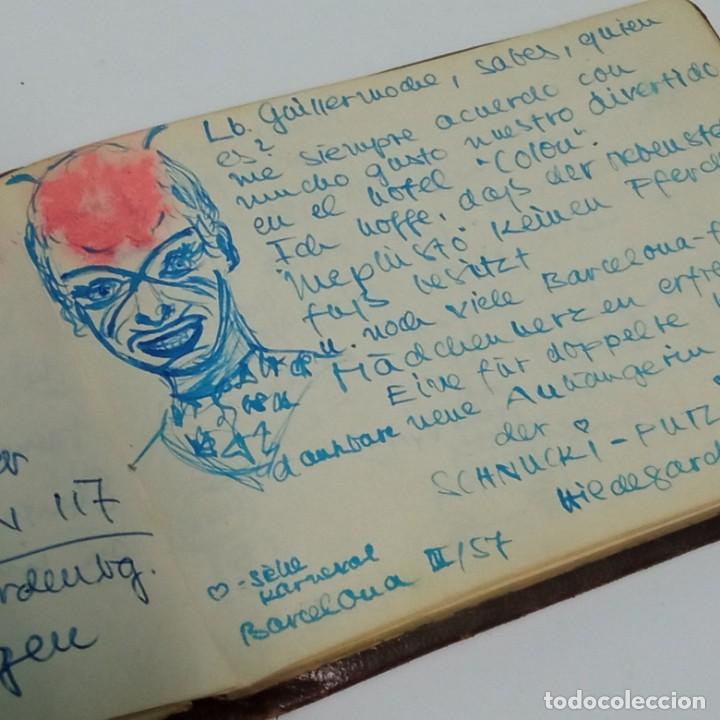 Lb. Guillermoche, sabes, quien
es?
me siempre acuerdo con
mucho gusto nuestro divertido
en el hotel "Colon".
Ich hoffe, dass der nebenste
"Mephisto" keinen Pferd
fuss besitzt
u. noch viele Barcelona-
Mädchenherzen erfre
Eine für doppelte
dankbare neue Anhängerin
der ♡
SCHNUCKI-PUTZ
Hildegard
♡-siehe
Karneval
Barcelona III/57
117
rdenbg.
gen
todocoleccion
todocoleccion.net